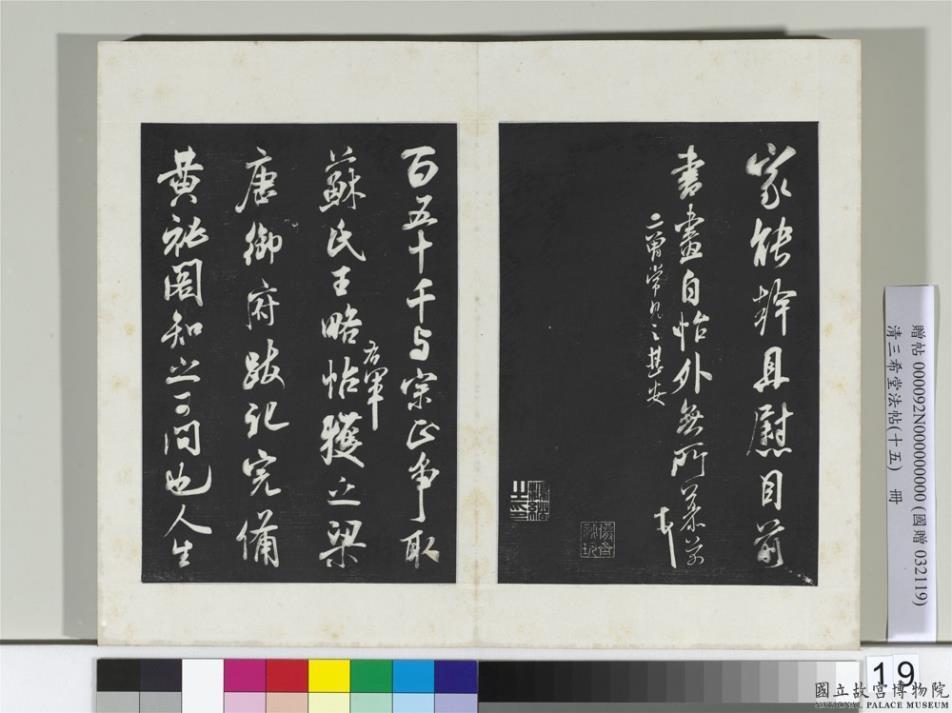 家能幹且慰目前
書畫自怡外無所慕芾
二曾常見之甚安
百五十千与宗正爭取
蘇氏王略帖獲之梁
右軍
唐御府跋記完備
黃祕閣知之可問也人生
贈帖 000092N000000000 (國贈 032119)
清三希堂法帖(十五) 冊
19
國立故宮博物院
NATIONAL PALACE MUSEUM